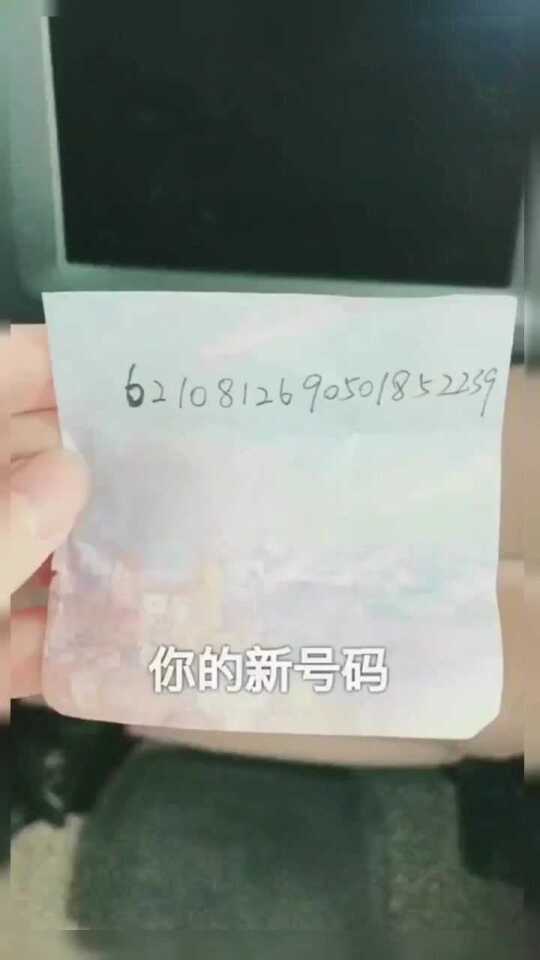 6210812690501852239
你的新号码